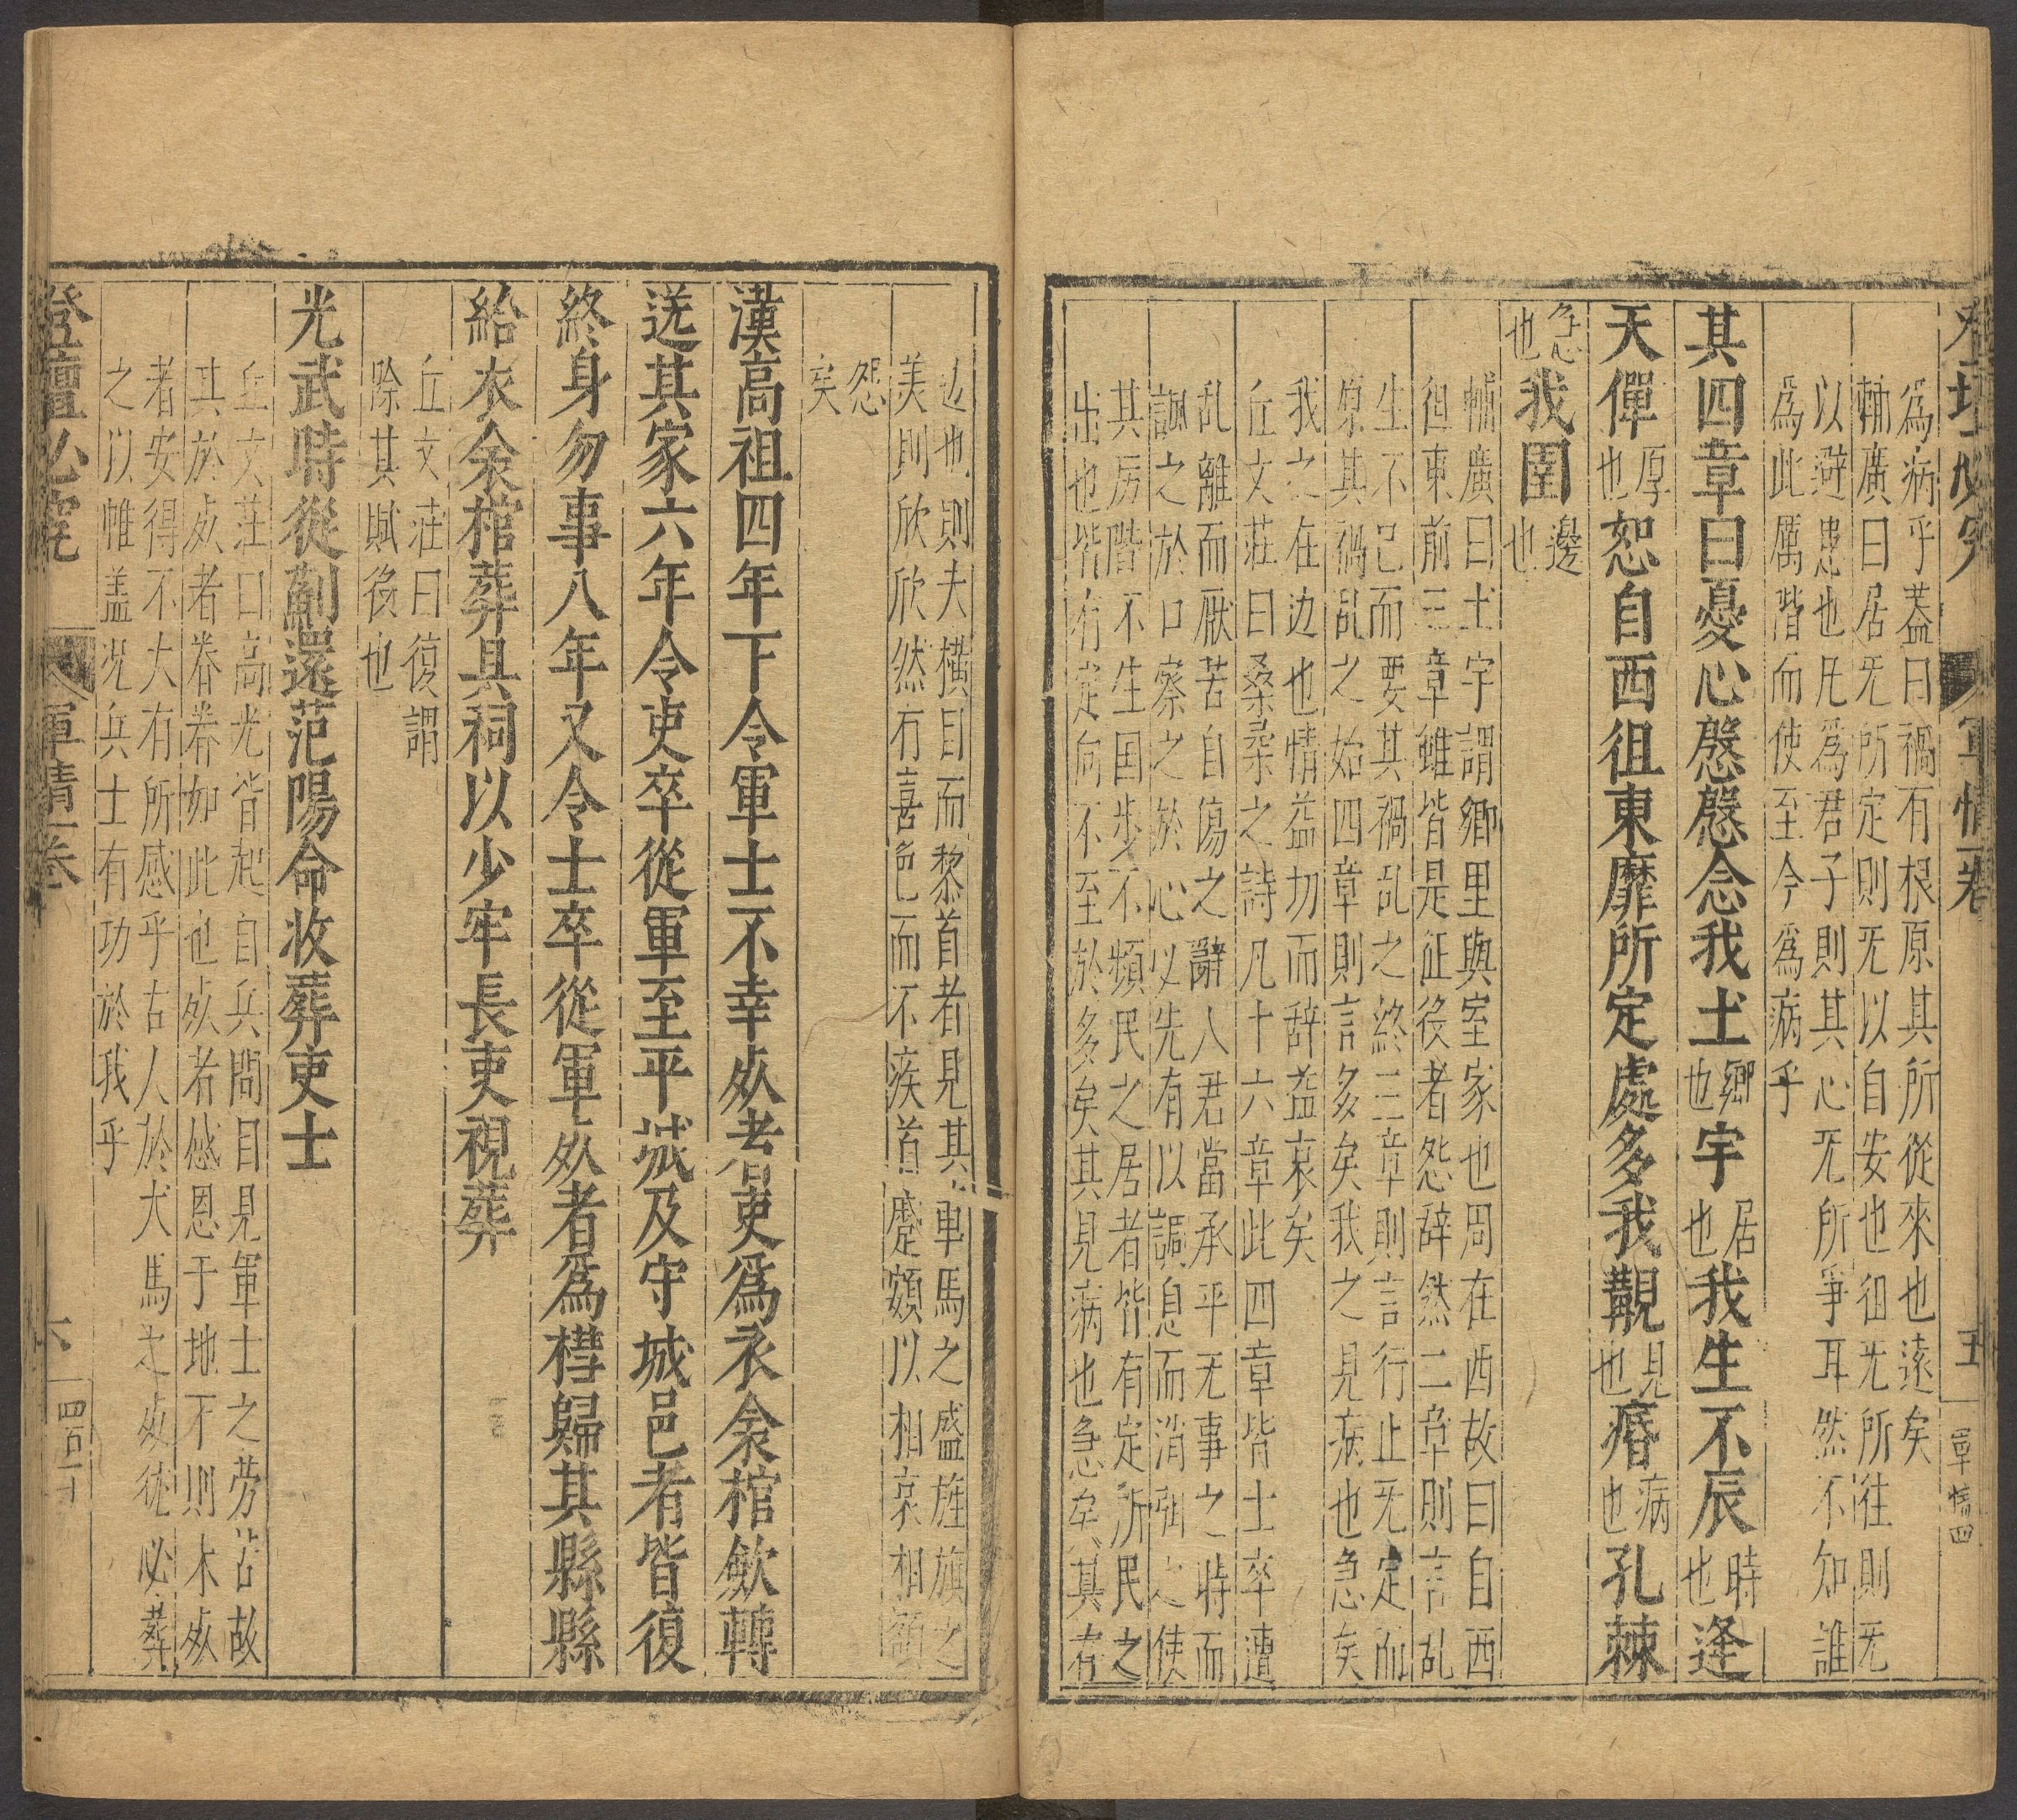 登壇必究 軍情一卷 五 軍情四
爲病乎葢曰禍有根原其所從來也遠矣
輔廣曰居无所定則无以自安也徂无所往則无
以避患也凡爲君子則其心无所爭耳然不知誰
爲此厲階而使至今爲病乎
其四章曰憂心慇慇念我土鄉也宇居也我生不辰時也逢
天僤厚也恕自西徂東靡所定處多我覯見也痻病也孔棘
急也我圉邊也
輔廣曰土宇謂鄉里與室家也周在西故曰自西
徂東前三章雖皆是征役者怨辞然二章則言乱
生不已而要其禍乱之終三章則言行止无定而
原其禍乱之始四章則言多矣我之見病也急矣
我之在边也情益切而辞益哀矣
丘文莊曰桑柔之詩凡十六章此四章皆士卒遭
乱離而厭苦自傷之辭人君當承平无事之時而
諷之於口察之於心必先有以謳息而消弭之使
其厉階不生国步不頻民之居者皆有定所民之
出也皆有定向不至於多矣其見病也急矣其在
边也則夫横目而黎首者見其車馬之盛旌旗之
美則欣欣然有喜色而不疾首蹙頞以相哀相顧
怨
矣
漢高祖四年下令軍士不幸死者吏爲衣衾棺斂轉
送其家六年令吏卒從軍至平城及守城邑者皆復
終身勿事八年又令士卒從軍死者爲槥歸其縣縣
給衣衾棺葬具祠以少牢長吏視葬
丘文莊曰復謂
除其賦役也
光武時從薊還范陽命收葬吏士
丘文莊曰高光皆起自兵間目見軍士之劳苦故
其於死者眷眷如此也死者感恩于地下則未死
者安得不大有所感乎古人於犬馬之死猶必葬
之以帷盖况兵士有功於我乎
登壇必究 軍情一卷 六 四百二十